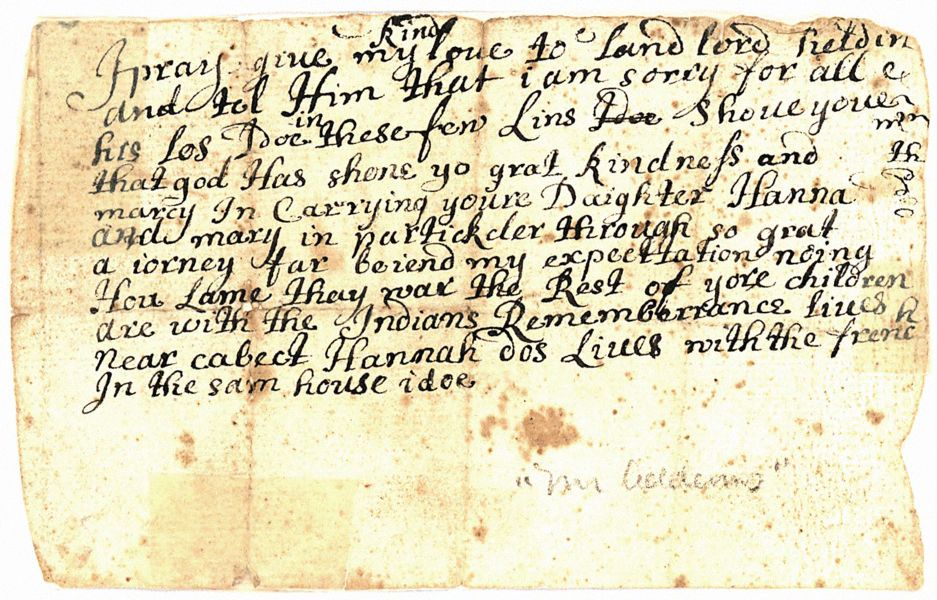 kind
I pray give my love to land lord Sheldin
and tel Him that i am sorry for all
his los I doe in these few Lins I doe shoue youe
that god Has shone yo grat kindness and
marcy In Carrying youre Daighter Hanna
and mary in partickder through so grat
a iorney far beiend my expecttation noing
Hou Lame thay war the Rest of yore children
are with the Indians Rememberrance liues
near cabect Hannah dos Liues with the frenc h
In the sam house i doe